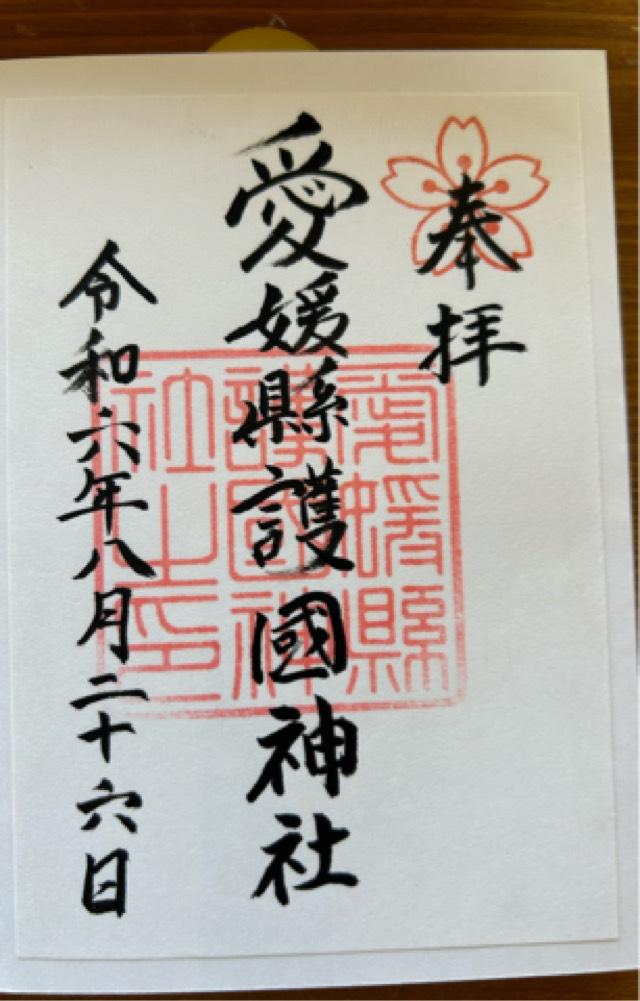 奉拝
愛媛縣護國神社
令和六年八月二十六日
愛媛縣
護國神
社之印